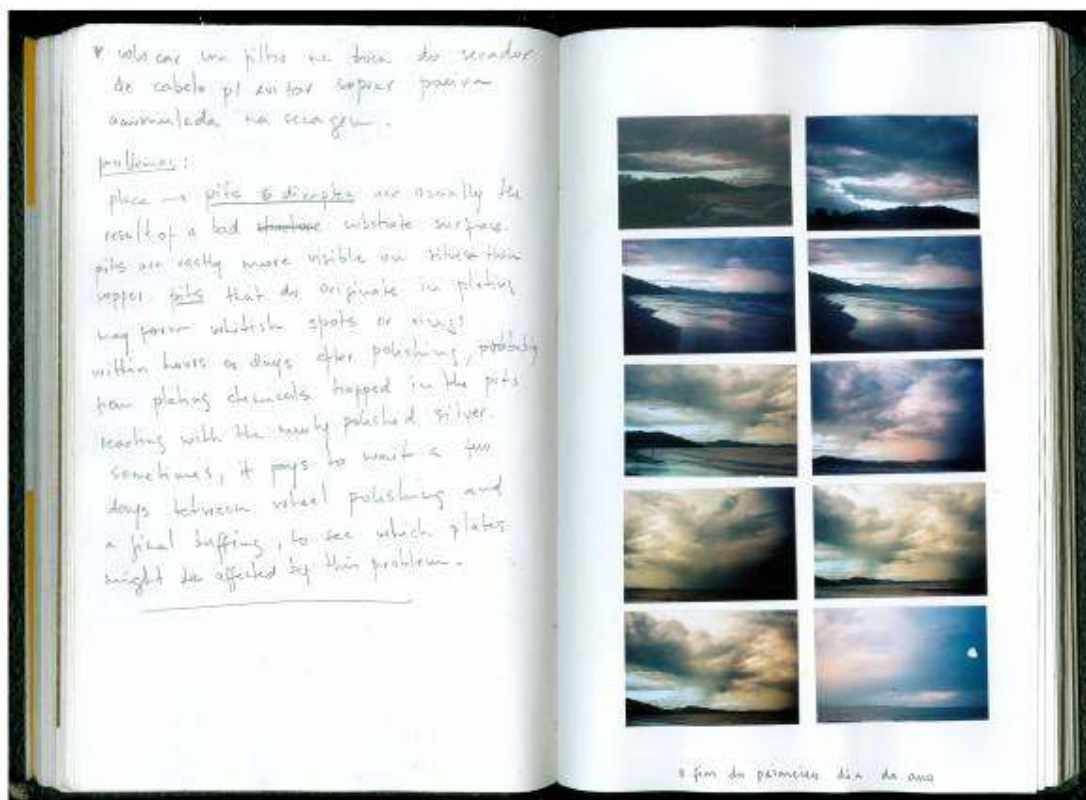 * colocar um filtro na boca do secador
de cabelo p/ evitar soprar poeira
acumulada na secagem.
problemas:
place → pits & dimples are usually the
result of a bad substrate surface.
pits are vastly more visible on silver than
copper. pits that do originate in plating
may form whitish spots or rings
within hours or days after polishing, probably
from plating chemicals trapped in the pits
reacting with the newly polished silver.
sometimes, it pays to wait a few
days between wheel polishing and
a final buffing, to see which plates
might be affected by this problem.
o fim do primeiro dia do ano